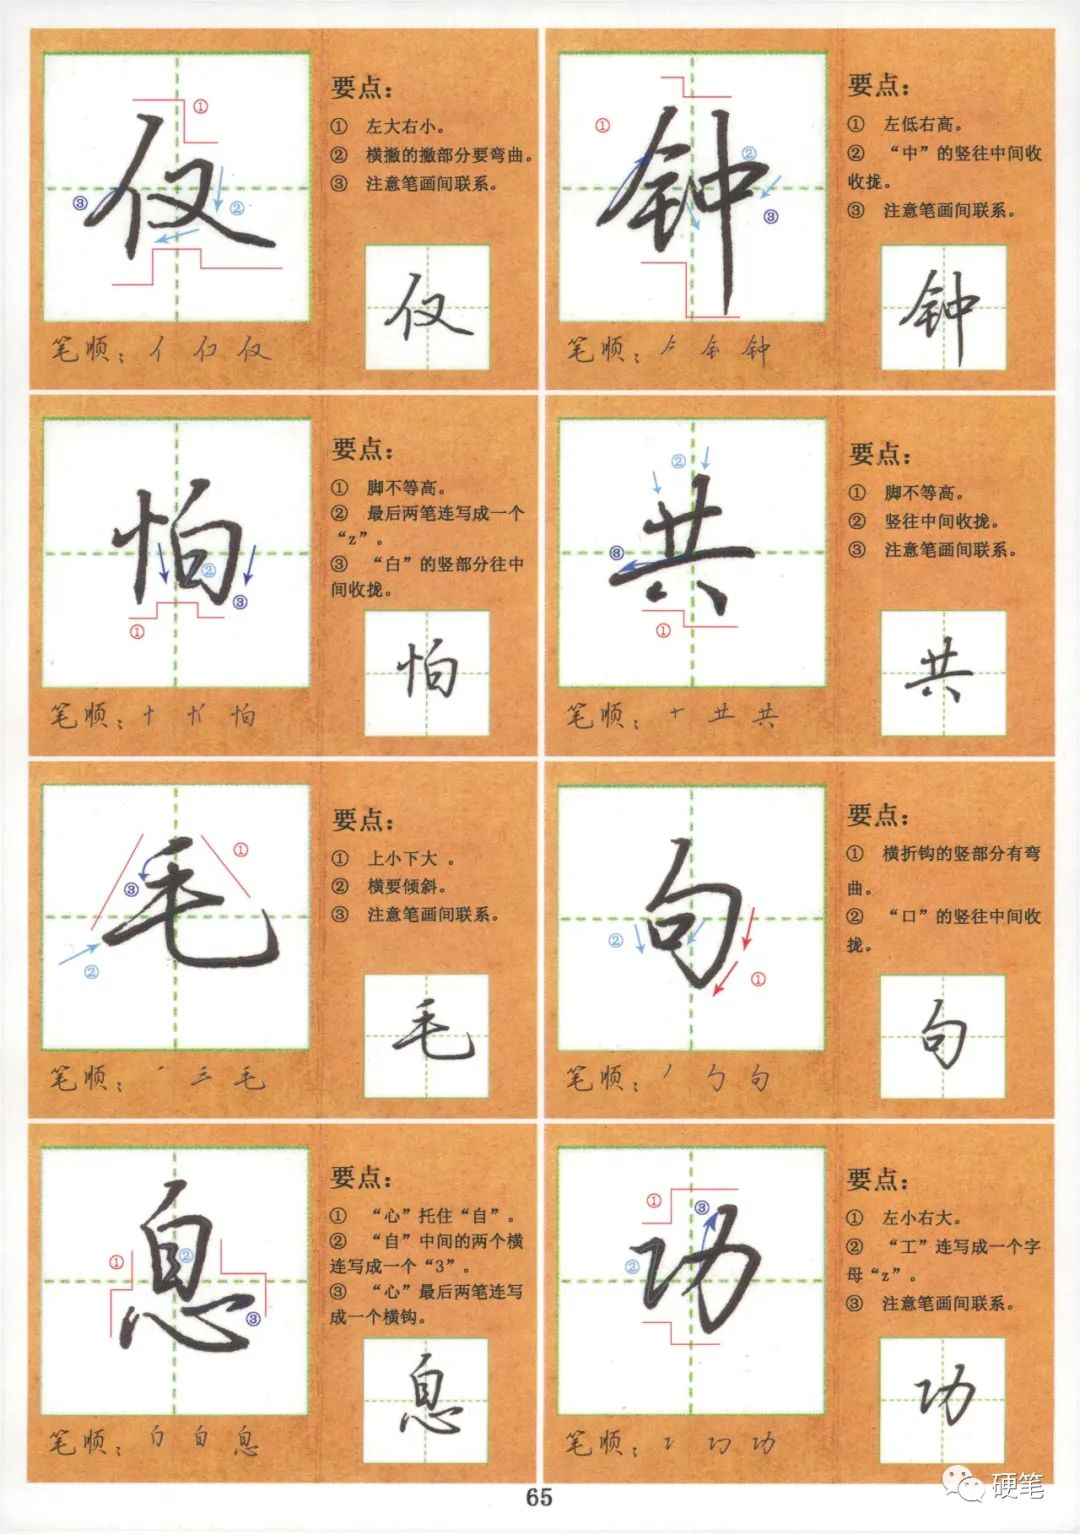 仅
要点：
① 左大右小。
② 横撇的撇部分要弯曲。
③ 注意笔画间联系。
①
②
③
仅
笔顺：亻 仅
钟
要点：
① 左低右高。
② “中”的竖往中间收
收拢。
③ 注意笔画间联系。
①
②
③
钟
笔顺：钅 钟
怕
要点：
① 脚不等高。
② 最后两笔连写成一个
“z”。
③ “白”的竖部分往中
间收拢。
①
②
③
怕
笔顺：怕
共
要点：
① 脚不等高。
② 竖往中间收拢。
③ 注意笔画间联系。
②
③
①
共
笔顺：十 龷 共
毛
要点：
① 上小下大 。
② 横要倾斜。
③ 注意笔画间联系。
①
③
②
毛
笔顺：三 毛
句
要点：
① 横折钩的竖部分有弯
曲。
② “口”的竖往中间收
拢。
②
①
句
笔顺：丿 勹 句
息
要点：
① “心”托住“自”。
② “自”中间的两个横
连写成一个“3”。
③ “心”最后两笔连写
成一个横钩。
①
②
③
息
笔顺：白 自 息
功
要点：
① 左小右大。
② “工”连写成一个字
母“z”。
③ 注意笔画间联系。
①
③
②
功
笔顺：功
65
硬笔